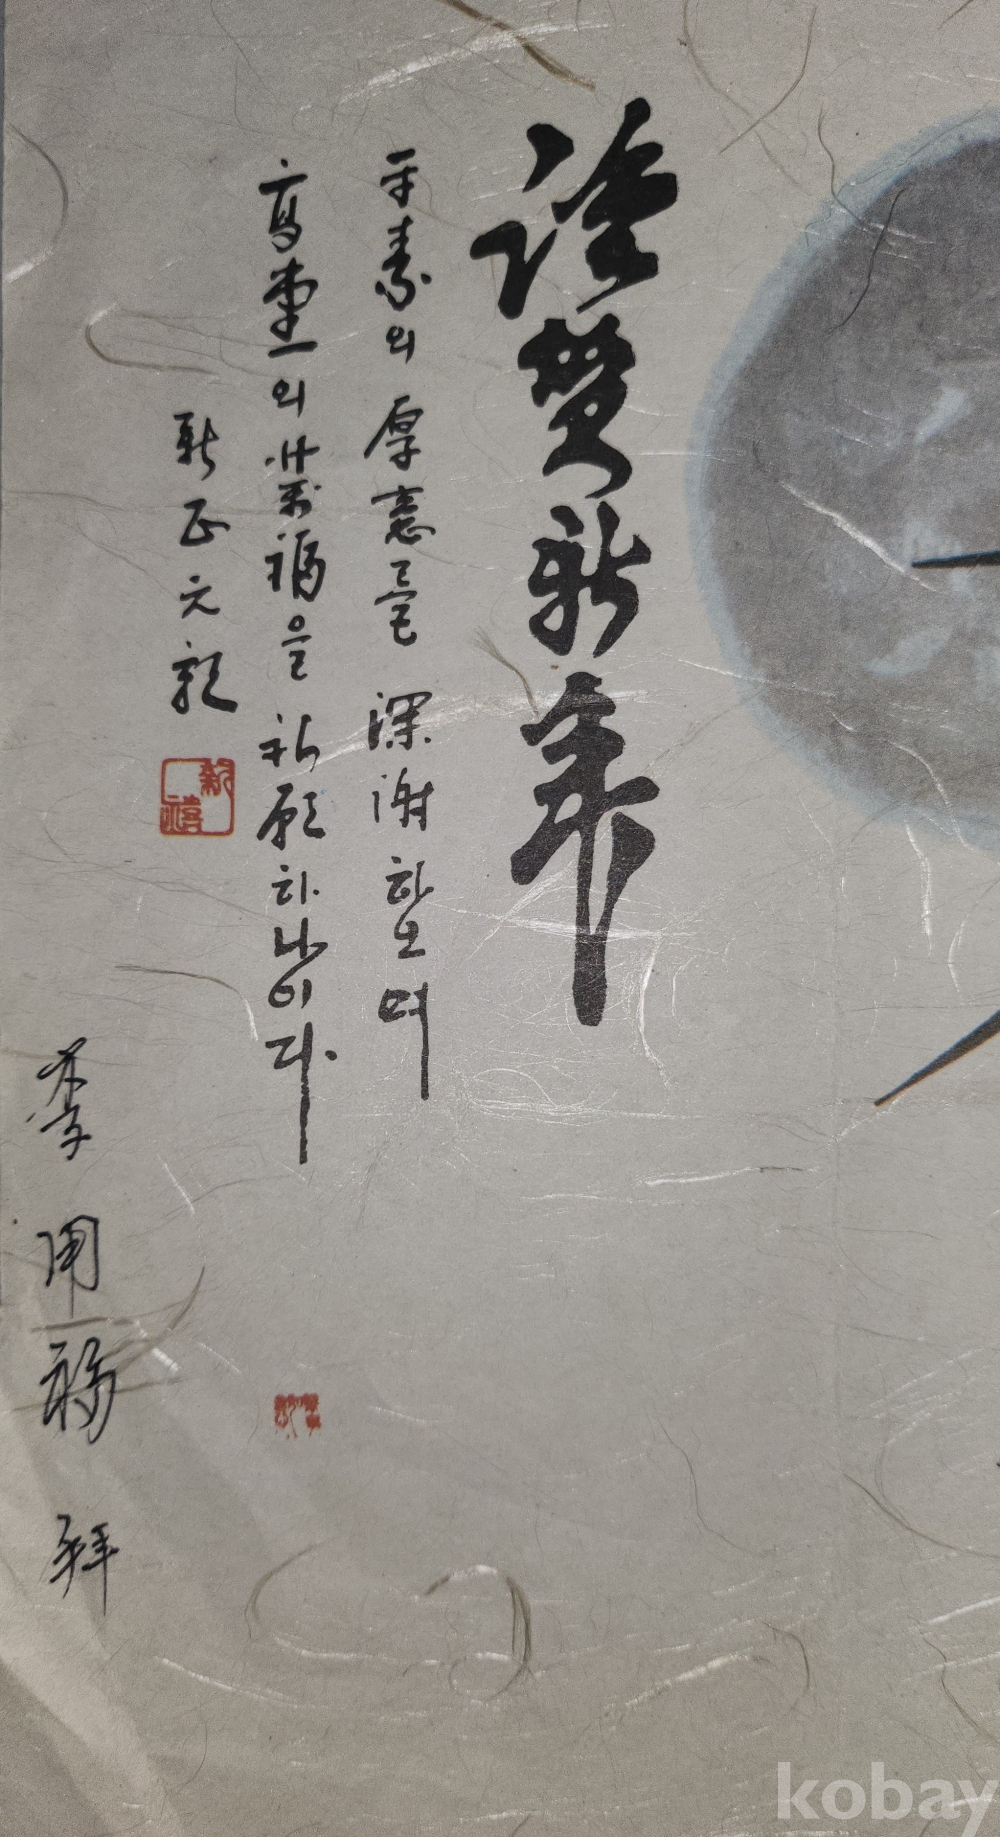 謹賀新年
平素의 厚意를 深謝하오며
高堂의 萬福을 祈願하나이다
新正 元朝
新禧
李用福 拜
kobay